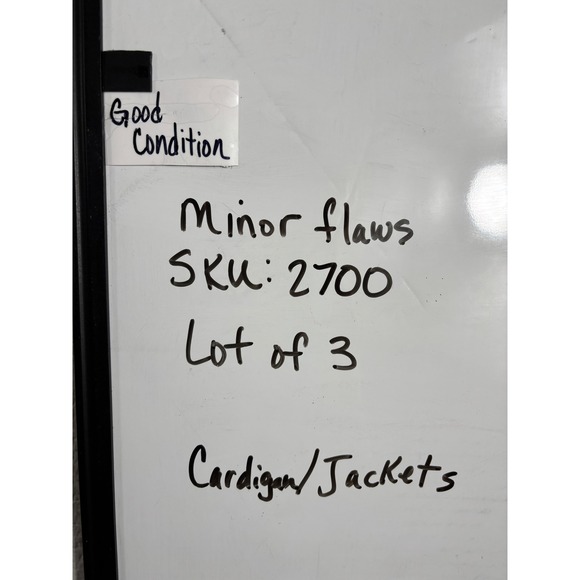 Good
Condition
Minor flaws
SKU: 2700
Lot of 3
Cardigan/Jackets